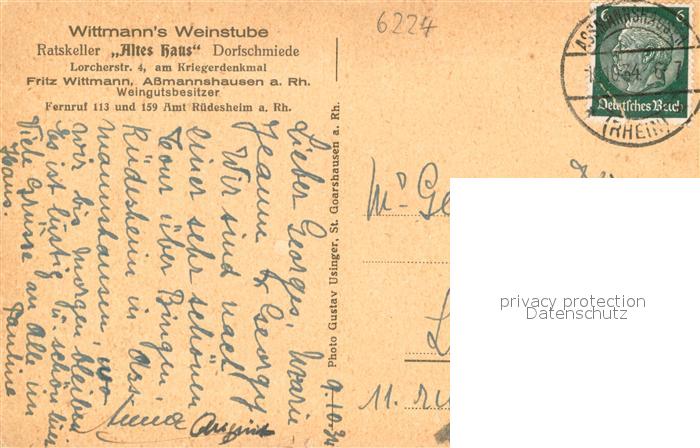 Wittmann's Weinstube
Ratskeller „Altes Haus" Dorfschmiede
Lorcherstr. 4, am Kriegerdenkmal
Fritz Wittmann, Aßmannshausen a. Rh.
Weingutsbesitzer
Fernruf 113 und 159 Amt Rüdesheim a. Rh.
6224
9.10.34
Lieber Georges, Marie
Jeanne & Georgy
Wir sind nach
einer sehr schönen
Tour über Bingen
Rüdesheim in Ass-
mannshausen, wo
wir bis morgen bleiben
Es ist lustig u. schön hier
Viele Grüsse an Alle im
Haus. Pauline
Anna
Photo Gustav Usinger, St. Goarshausen a. Rh.
6 6
Deutsches Reich
ASSMANNSHAUSEN
(RHEIN)
Mr Ge
L
11. ru
privacy protection
Datenschutz